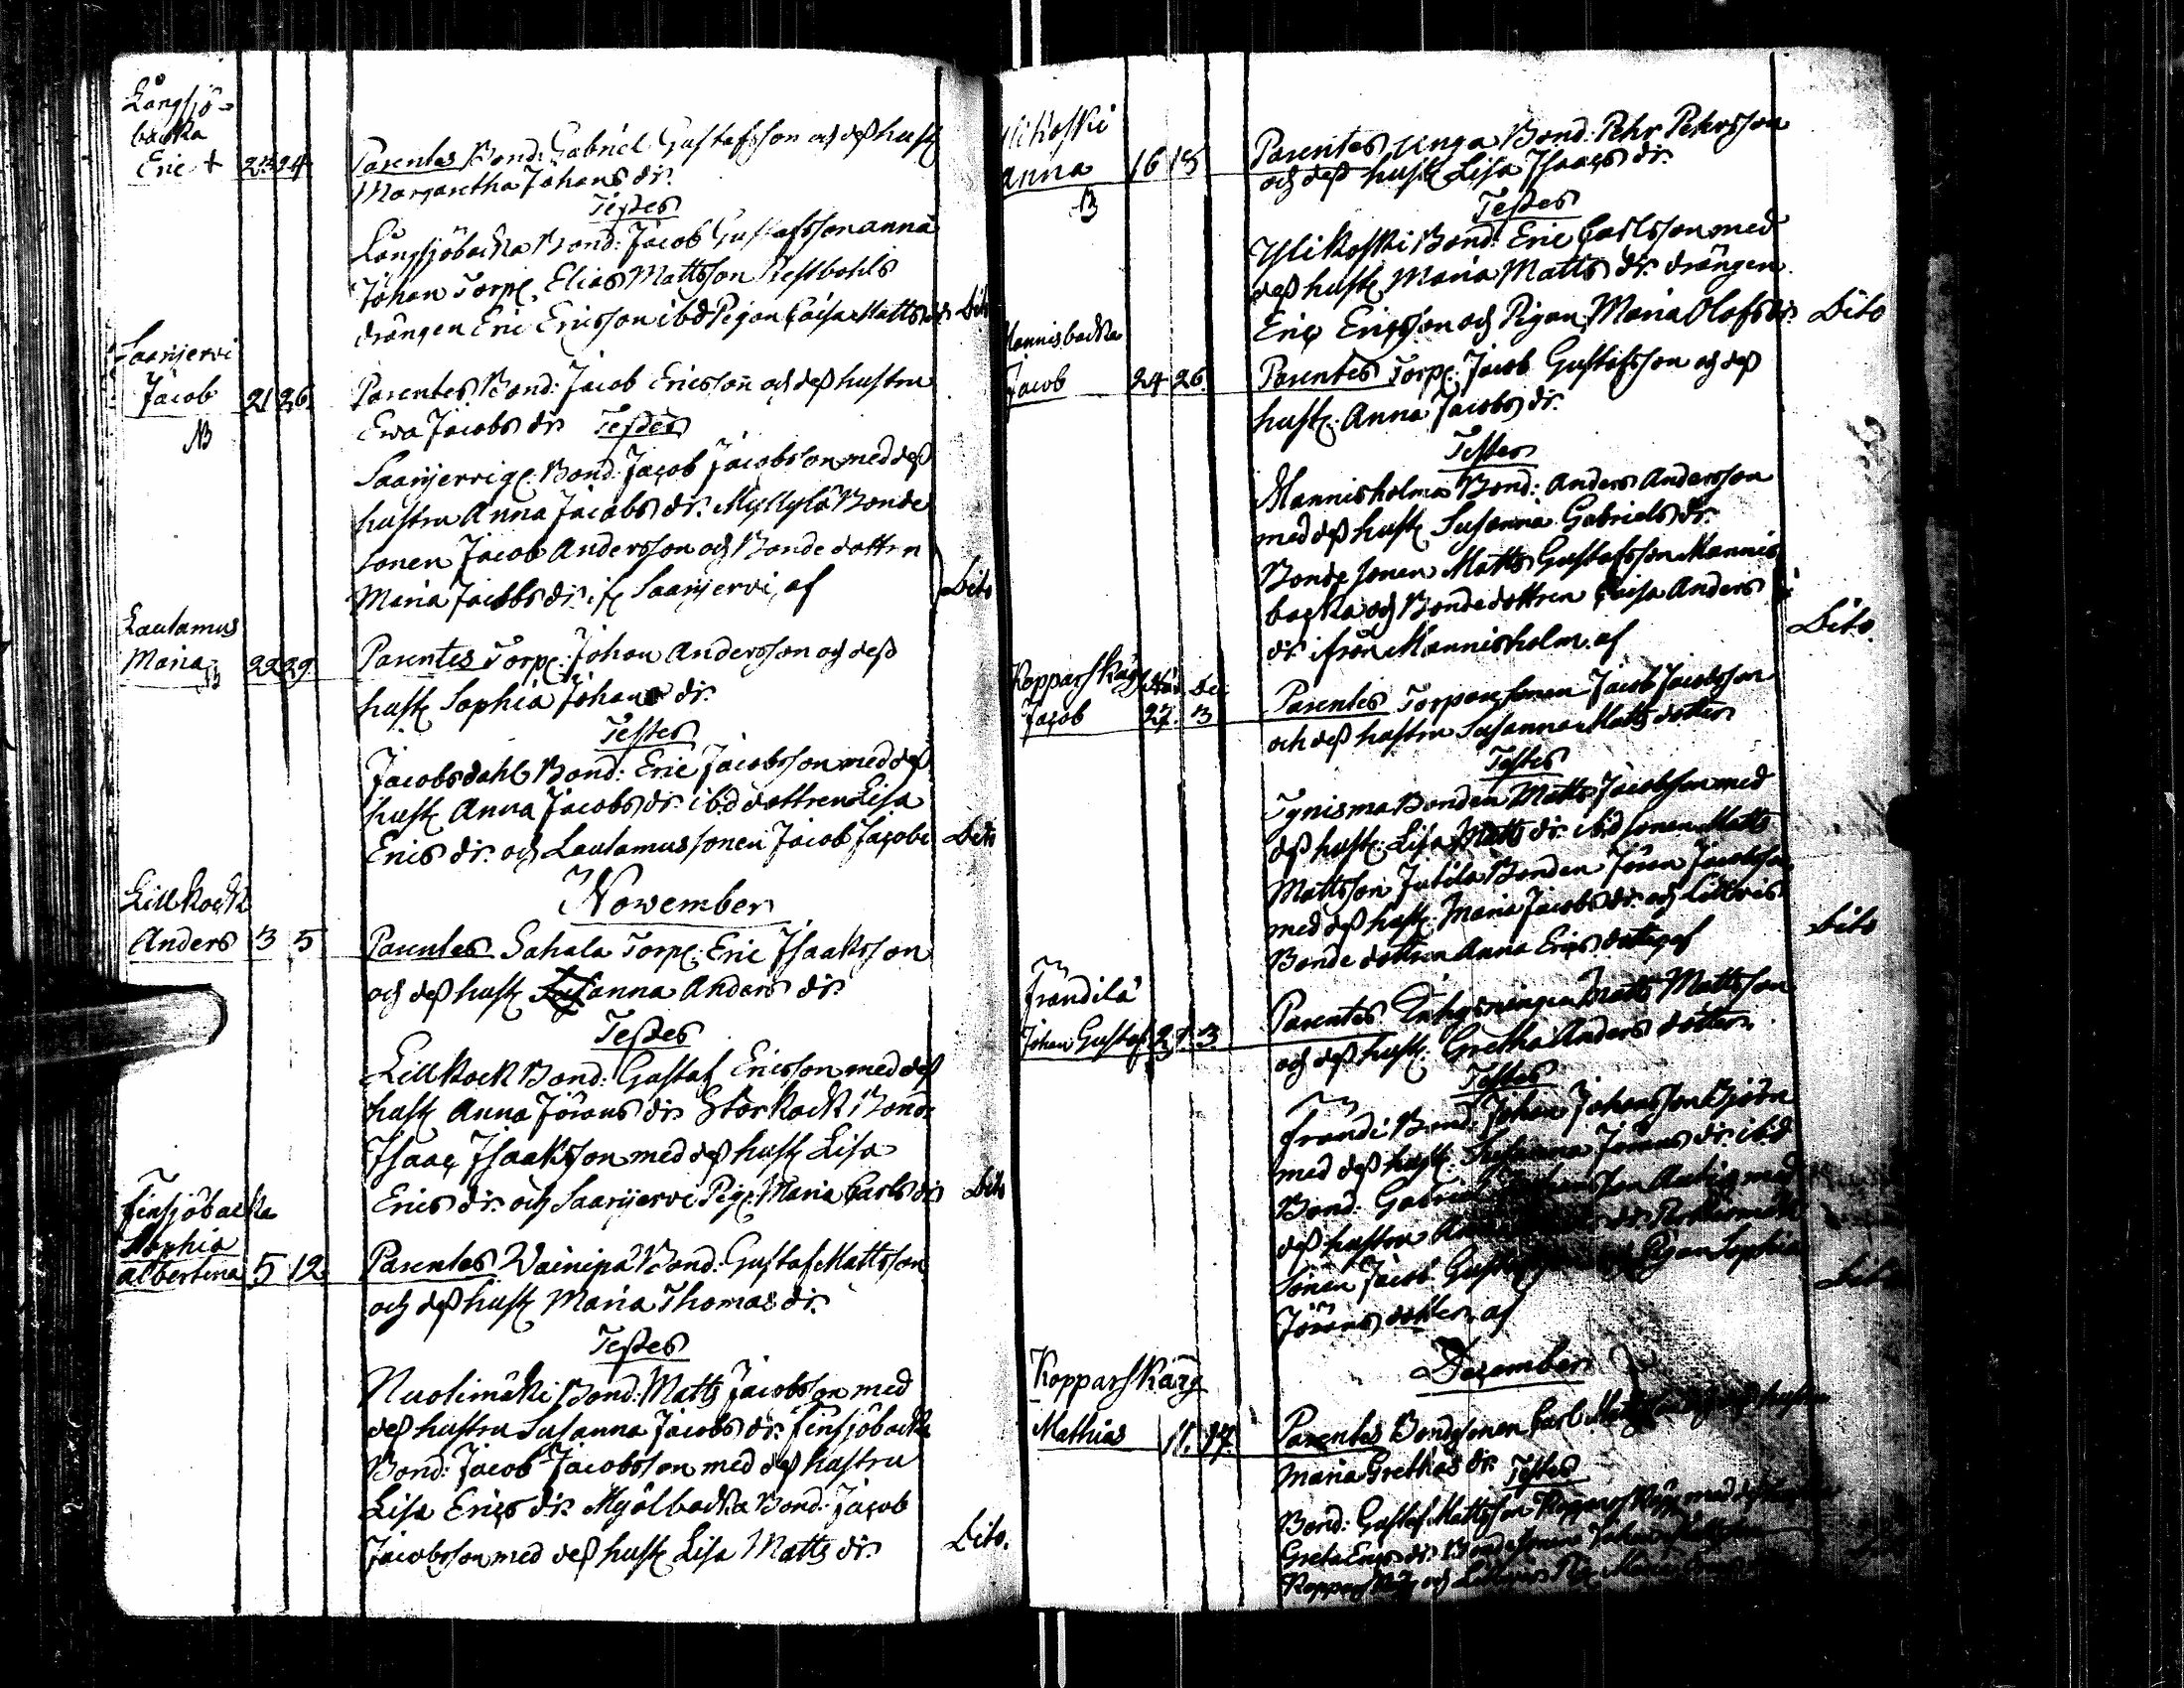 Långsjö-
backa
Eric + 23 24. Parentes Bond: Gabriel Gustafsson och deß hust:
Margaretha Johans dr.
Testes
Långsjöbacka Bond: Jacob Gustafsson anna
Johan Torp: Elias Mattsson Westbohls
drängen Eric Ericsson ibd Pigan Caisa Matts dr Dito
Saarijervi
Jacob 21 26. Parentes Bond: Jacob Ericsson och deß hustru
NB Ewa Jacobs dr. Testes
Saarijervi Bond: Jacob Jacobsson med deß
hustru Anna Jacobs dr. Myllylä Bonde
sonen Jacob Andersson och Bonde dottren
Maria Jacobs dr. if: Saarijervi, af Dito
Lautamus
Maria 22 29. Parentes Torp: Johan Andersson och deß
NB hust: Sophia Johans dr.
Testes
Jacobsdahl Bond: Eric Jacobsson med deß
hust: Anna Jacobs dr. ibd dottren Lisa
Erics dr. och Lautamus sonen Jacob Jacobs Dito
November
Lillkock
Anders 3 5 Parentes Sahala Torp: Eric Isaaksson
och deß hust: Susanna Anders dr.
Testes
Lillkock Bond: Gustaf Ericsson med deß
hust: Anna Jörans dr. Storkock Bond:
Isaac Isaaksson med deß hust: Lisa
Erics dr. och Saarijervi Pig: Maria Carls dr Dito
Finsjöbacka
Sophia
Albertina 5 12. Parentes Wainipä Bond: Gustaf Mattsson
och deß hust: Maria Thomas dr.
Testes
Nuolimäki Bond: Matts Jacobsson med
deß hustru Susanna Jacobs dr. Finsjöbacka
Bond: Jacob Jacobsson med deß hustru
Lisa Erics dr. Mjölbacka Bond: Jacob
Jacobsson med deß hust: Lisa Matts dr. Dito.
Ylikoski
Anna 16 18 Parentes Unga Bond: Pehr Pehrsson
NB och deß hust: Lisa Isaacs dr.
Testes
Ylikoski Bond: Eric Carlsson med
deß hust: Maria Matts dr. drängen
Eric Ericsson och Pigan Maria Olofs dr. Dito
Mannisbacka
Jacob 24 26. Parentes Torp: Jacob Gustafsson och deß
hust: Anna Jacobs dr.
Testes
Mannisholma Bond: Anders Andersson
med deß hust: Susanna Gabriels dr.
Bonde sonen Matts Gustafsson Mannis
backa och Bondedottren Caisa Anders
dr. ifrån Mannisholm. af Dito.
Kopparskärg Nov. De:
Jacob 27. 3 Parentes Torpare sonen Jacob Jacobsson
och deß hustru Susanna Matts dotter
Testes
Tynisma Bonden Matts Jacobsson med
deß hust: Lisa Matts dr. ibd sonen Matts
Mattsson Jutila Bonden Jöran Jacobsson
med deß hust: Maria Jacobs dr. och
Bonde dottren Anna Erics dotter af Dito
Frändilä
Johan Gustaf 27. 3. Parentes Matts Mattsson
och deß hust: Gretha Anders dotter.
Testes
Frändi Bond: Johan Johansson Björn
med deß hust: Susanna Jörans dr. ibd
Bond: Gabriel
deß hustru
sonen Jacob Pigan Sophia
Jörans dotter af Dito
December
Kopparskärg
Mathias 11. 14. Parentes Bondesonen Carl
Maria Grethas dr. Testes
Bond: Gustaf Mattsson
Greta Erics dr. Bondesonen Johan